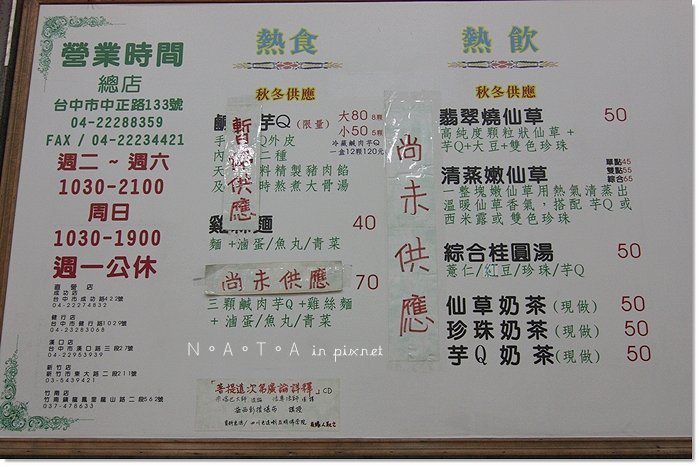 營業時間
總店
台中市中正路133號
04-22288359
FAX / 04-22234421
週二 ~ 週六
1030-2100
周日
1030-1900
週一公休
直營店
成功店
台中市成功路422號
04-22274832
健行店
台中市健行路1029號
04-23283068
漢口店
台中市漢口路三段27號
04-22953939
新竹店
新竹市東大路二段211號
03-5439421
竹南店
竹南鎮龍鳳里龍山路二段562號
037-478633
熱食
秋冬供應
鹹 芋Q (限量) 大80 8顆
小50 5顆
手 Q外皮 冷藏鹹肉芋Q
內 二種 一盒12顆120元
天 料精製豬肉餡
及 時熬煮大骨湯
暫停供應
雞絲麵 40
麵+滷蛋/魚丸/青菜
尚未供應 70
三顆鹹肉芋Q+雞絲麵
+滷蛋/魚丸/青菜
N。A。T。A in pixnet
菩提道次第廣論詳釋 CD
熱飲
秋冬供應
尚未供應
翡翠燒仙草 50
高純度顆粒狀仙草+
芋Q+大豆+雙色珍珠
清蒸嫩仙草 單點45
雙點55
綜合65
一整塊嫩仙草用熱氣清蒸出
溫暖仙草香氣,搭配芋Q或
西米露或雙色珍珠
綜合桂圓湯 50
薏仁/紅豆/珍珠/芋Q
仙草奶茶(現做) 50
珍珠奶茶(現做) 50
芋Q奶茶(現做) 50